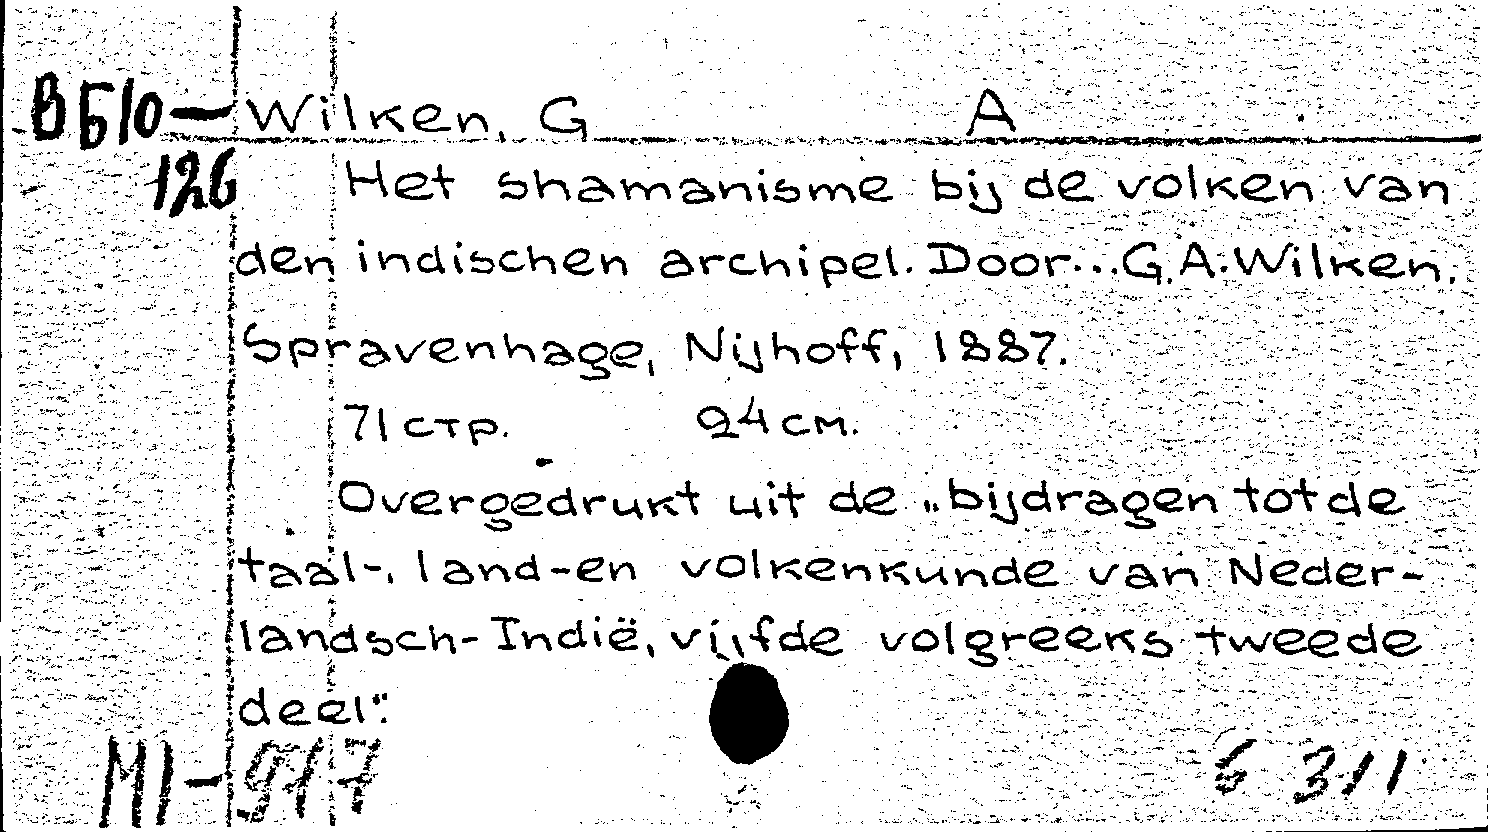 ВБ10— Wilken, G A
126 Het shamanisme bij de volken van
den indischen archipel. Door...G.A.Wilken.
Spravenhage, Nijhoff, 1887.
71 стр. 24 см.
Overgedrukt uit de „bijdragen tot de
taal-, land-en volkenkunde van Neder-
landsch-Indië, vijfde volgreeks tweede
deel".
МI-917 Б 311